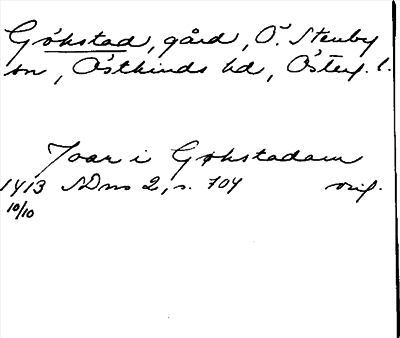 Gökstad, gård, Ö. Stenby
sn, Östkinds hd, Österg. l.
Joar i Gøkstadum
1413 SDns 2, s. 704 orig.
10/10